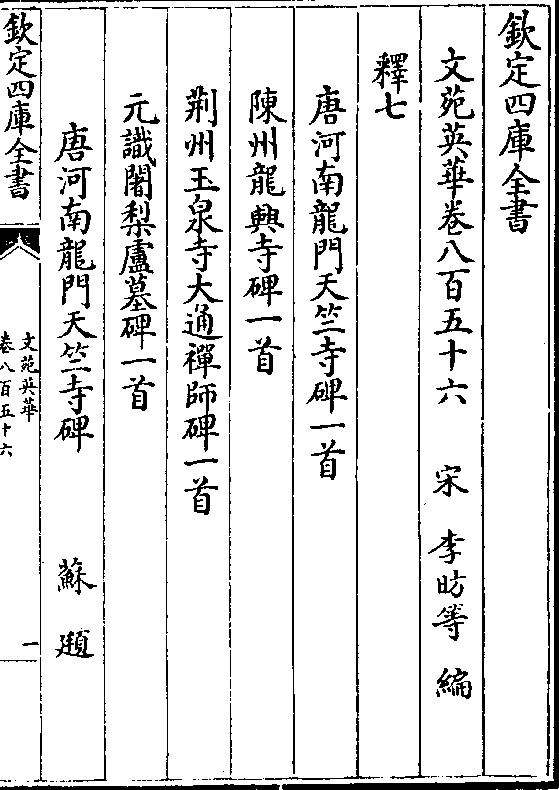 欽定四庫全書
文苑英華卷八百五十六　宋　李昉等　編
釋七
唐河南龍門天竺寺碑一首
陳州龍興寺碑一首
荆州玉泉寺大通禪師碑一首
元識闍梨廬墓碑一首
唐河南龍門天竺寺碑　蘇頲
欽定四庫全書
文苑英華
卷八百五十六
一